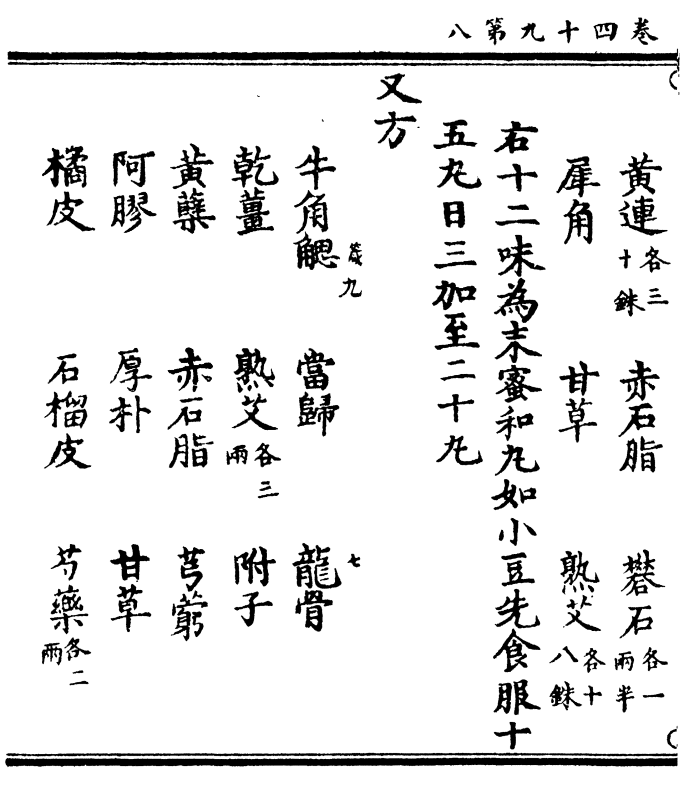 卷四十九第八
黃連各三十銖 赤石脂 礬石各一兩半
犀角 甘草 熟艾各十八銖
右十二味為末蜜和丸如小豆先食服十
五丸日三加至二十丸
又方
九 七
牛角䚡 當歸 龍骨
乾薑 熟艾各三兩 附子
黃蘗 赤石脂 芎藭
阿膠 厚朴 甘草
橘皮 石榴皮 芍藥各二兩